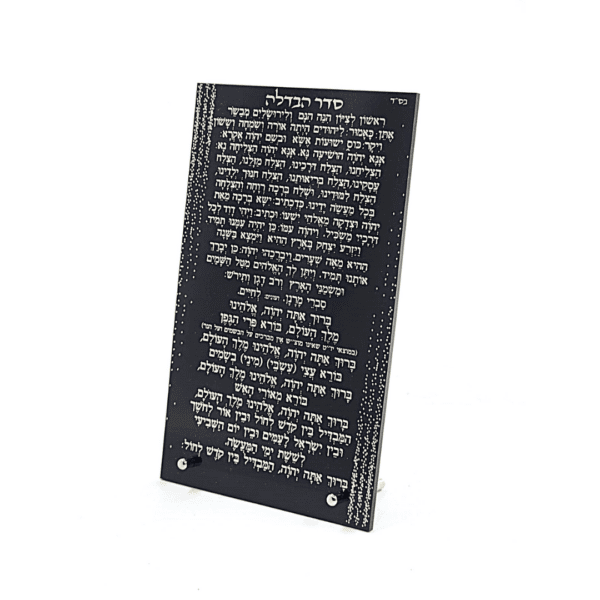 בס"ד
סדר הבדלה
ראשון לציון הנה הנם ולירושלים מבשר
אתן: כאמור: ליהודים היתה אורה ושמחה וששון
ויקר: כוס ישועות אשא ובשם יהוה אקרא:
אנא יהוה הושיעה נא. אנא יהוה הצליחה נא:
הצליחנו, הצלח דרכינו, הצלח מזלנו, הצלח
עסקינו, הצלח בריאותנו, הצלח חנוך ילדינו,
הצלח למודינו, ושלח ברכה רוחה והצלחה
בכל מעשה ידינו: כדכתיב: ישא ברכה מאת
יהוה וצדקה מאלהי ישעו: וכתיב: ויהי דוד לכל
דרכיו משכיל. ויהוה עמו: כן יהיה עמנו תמיד
ויזרע יצחק בארץ ההיא וימצא בשנה
ההיא מאה שערים. ויברכהו יהוה: כן יברך
אותנו תמיד. ויתן לך האלהים מטל השמים
ומשמני הארץ ורב דגן ותירש:
סברי מרנן. לחיים.
ברוך אתה יהוה, אלהינו
מלך העולם, בורא פרי הגפן
(במוצאי יו"ט שאינו מוצ"ש אין מברכים על הבשמים ועל הנר)
ברוך אתה יהוה, אלהינו מלך העולם,
בורא עצי (עשבי) (מיני) בשמים
ברוך אתה יהוה, אלהינו מלך העולם,
בורא מאורי האש
ברוך אתה יהוה, אלהינו מלך העולם,
המבדיל בין קדש לחול ובין אור לחשך
ובין ישראל לעמים ובין יום השביעי
לששת ימי המעשה.
ברוך אתה יהוה, המבדיל בין קדש לחול: